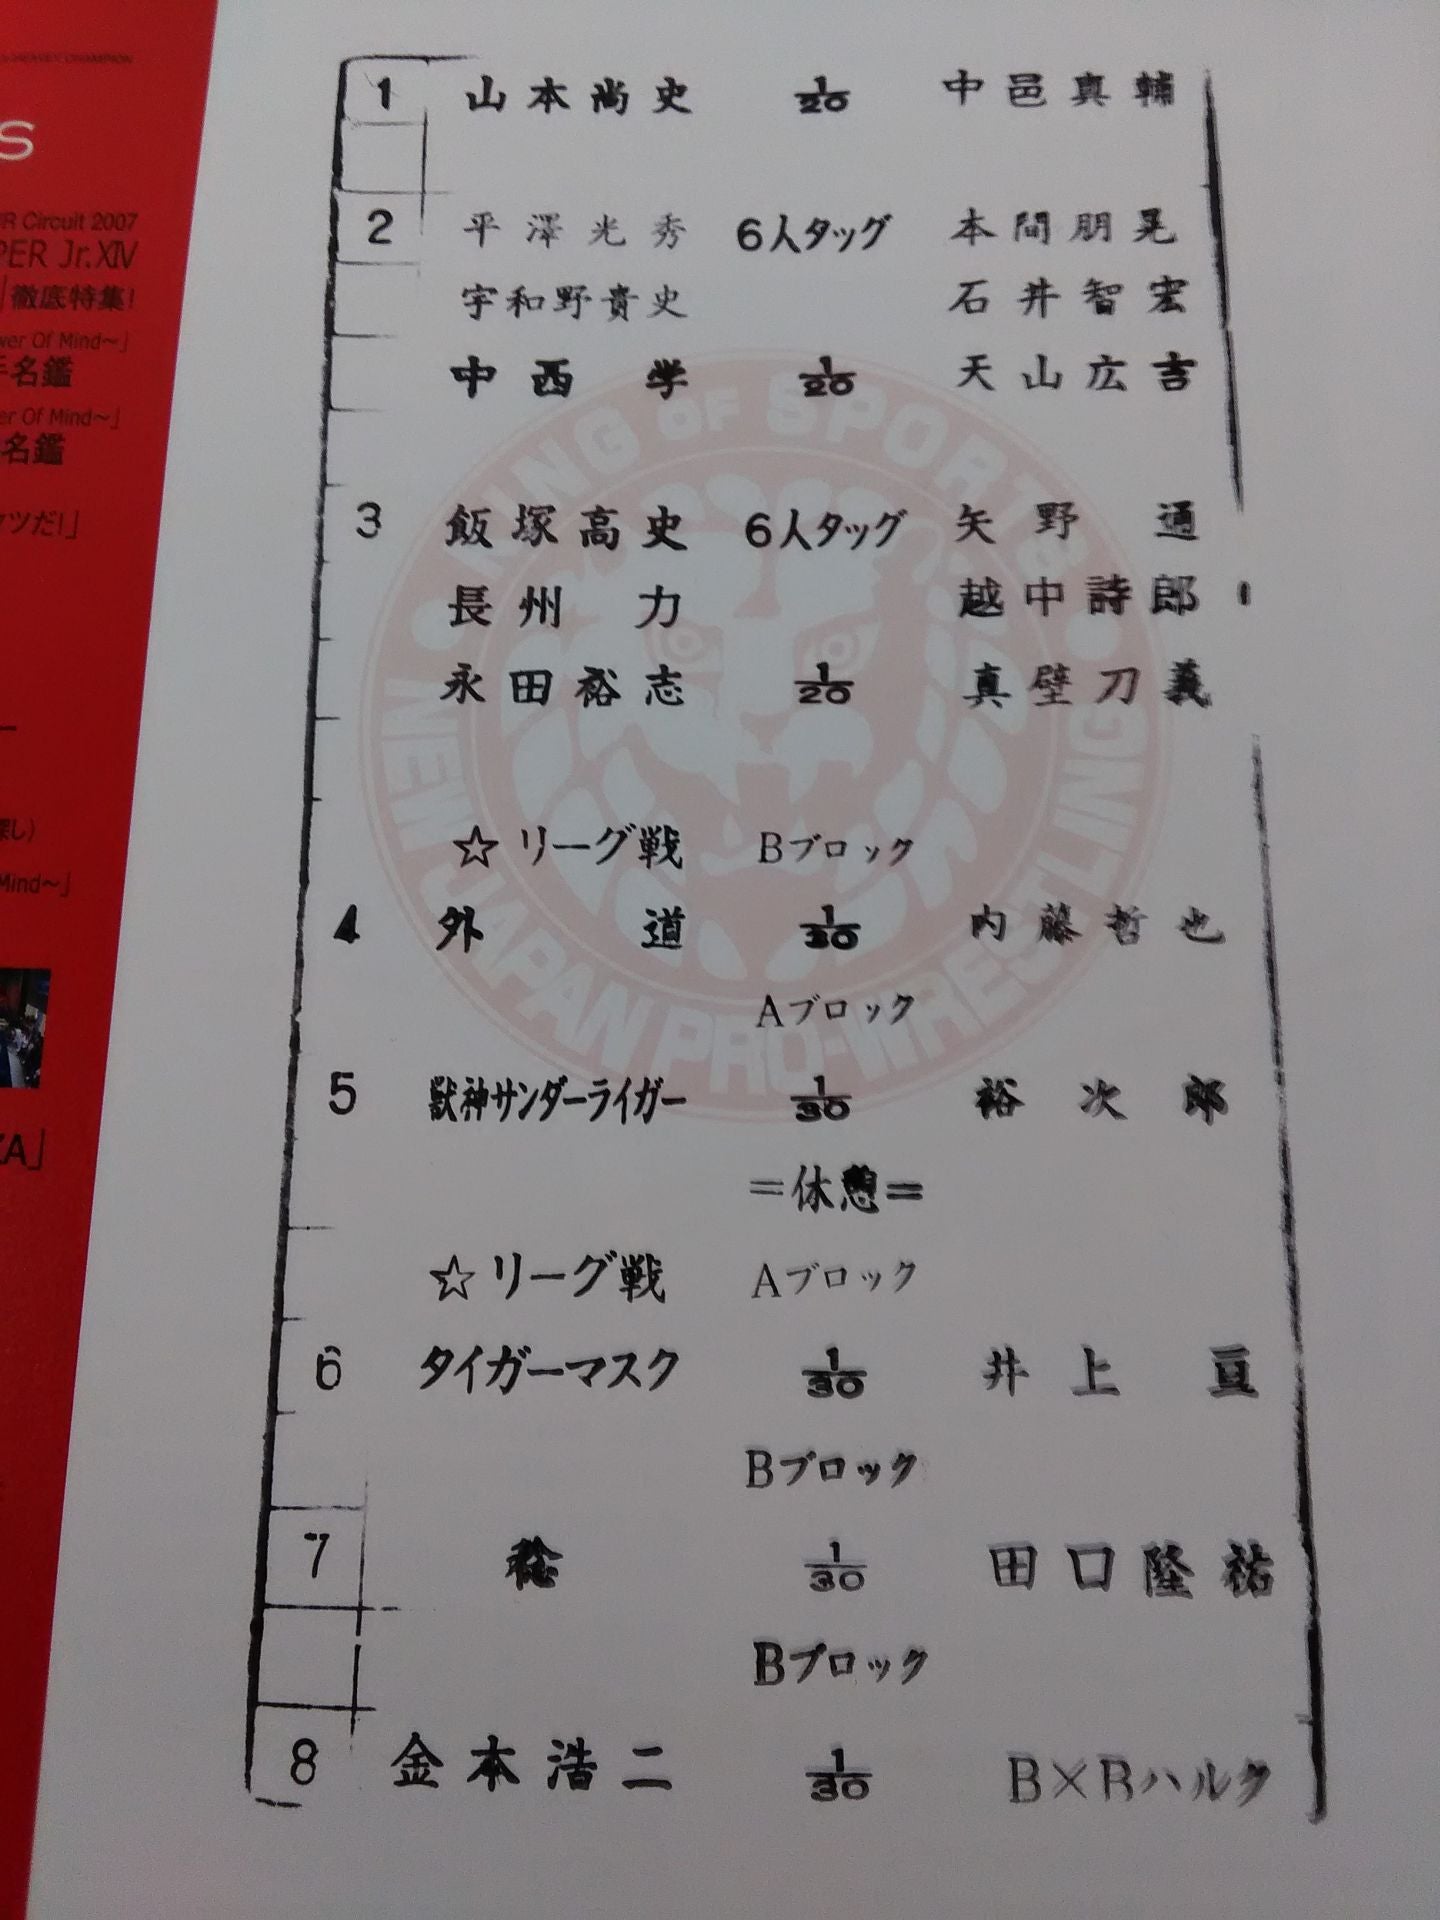 S
R Circuit 2007
PER Jr.XIV
」徹底特集!
wer Of Mind〜」
手名鑑
er Of Mind〜」
名鑑
ツだ!」
探し)
Mind〜」
ZA」
1 山本尚史 1/20 中邑真輔
2 平澤光秀 6人タッグ 本間朋晃
宇和野貴史 石井智宏
中西学 1/20 天山広吉
3 飯塚高史 6人タッグ 矢野通
長州力 越中詩郎
永田裕志 1/20 真壁刀義
☆リーグ戦 Bブロック
4 外道 1/30 内藤哲也
Aブロック
5 獣神サンダーライガー 1/30 裕次郎
=休憩=
☆リーグ戦 Aブロック
6 タイガーマスク 1/30 井上亘
Bブロック
7 稔 1/30 田口隆祐
Bブロック
8 金本浩二 1/30 B×Bハルク
KING OF SPORTS
NEW JAPAN PRO-WRESTLING